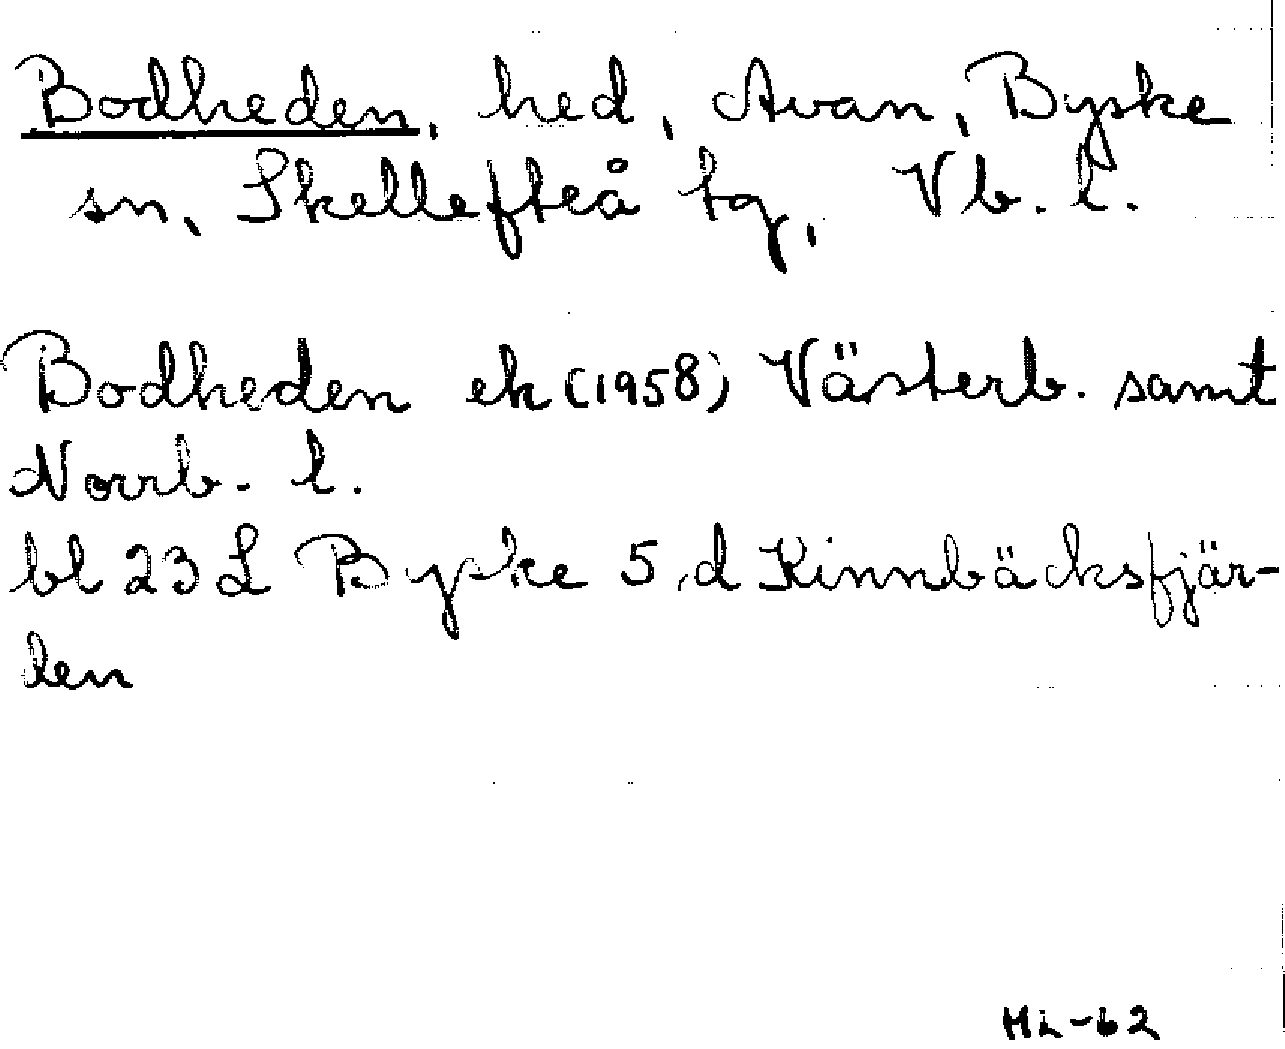 Bodheden, hed, Avan, Byske
sn, Skellefteå tg, Vb. l.
Bodheden ek (1958) Västerb. samt
Norrb. l.
bl 23 L Byske 5,d Kinnbäcksfjär-
len
HL-62